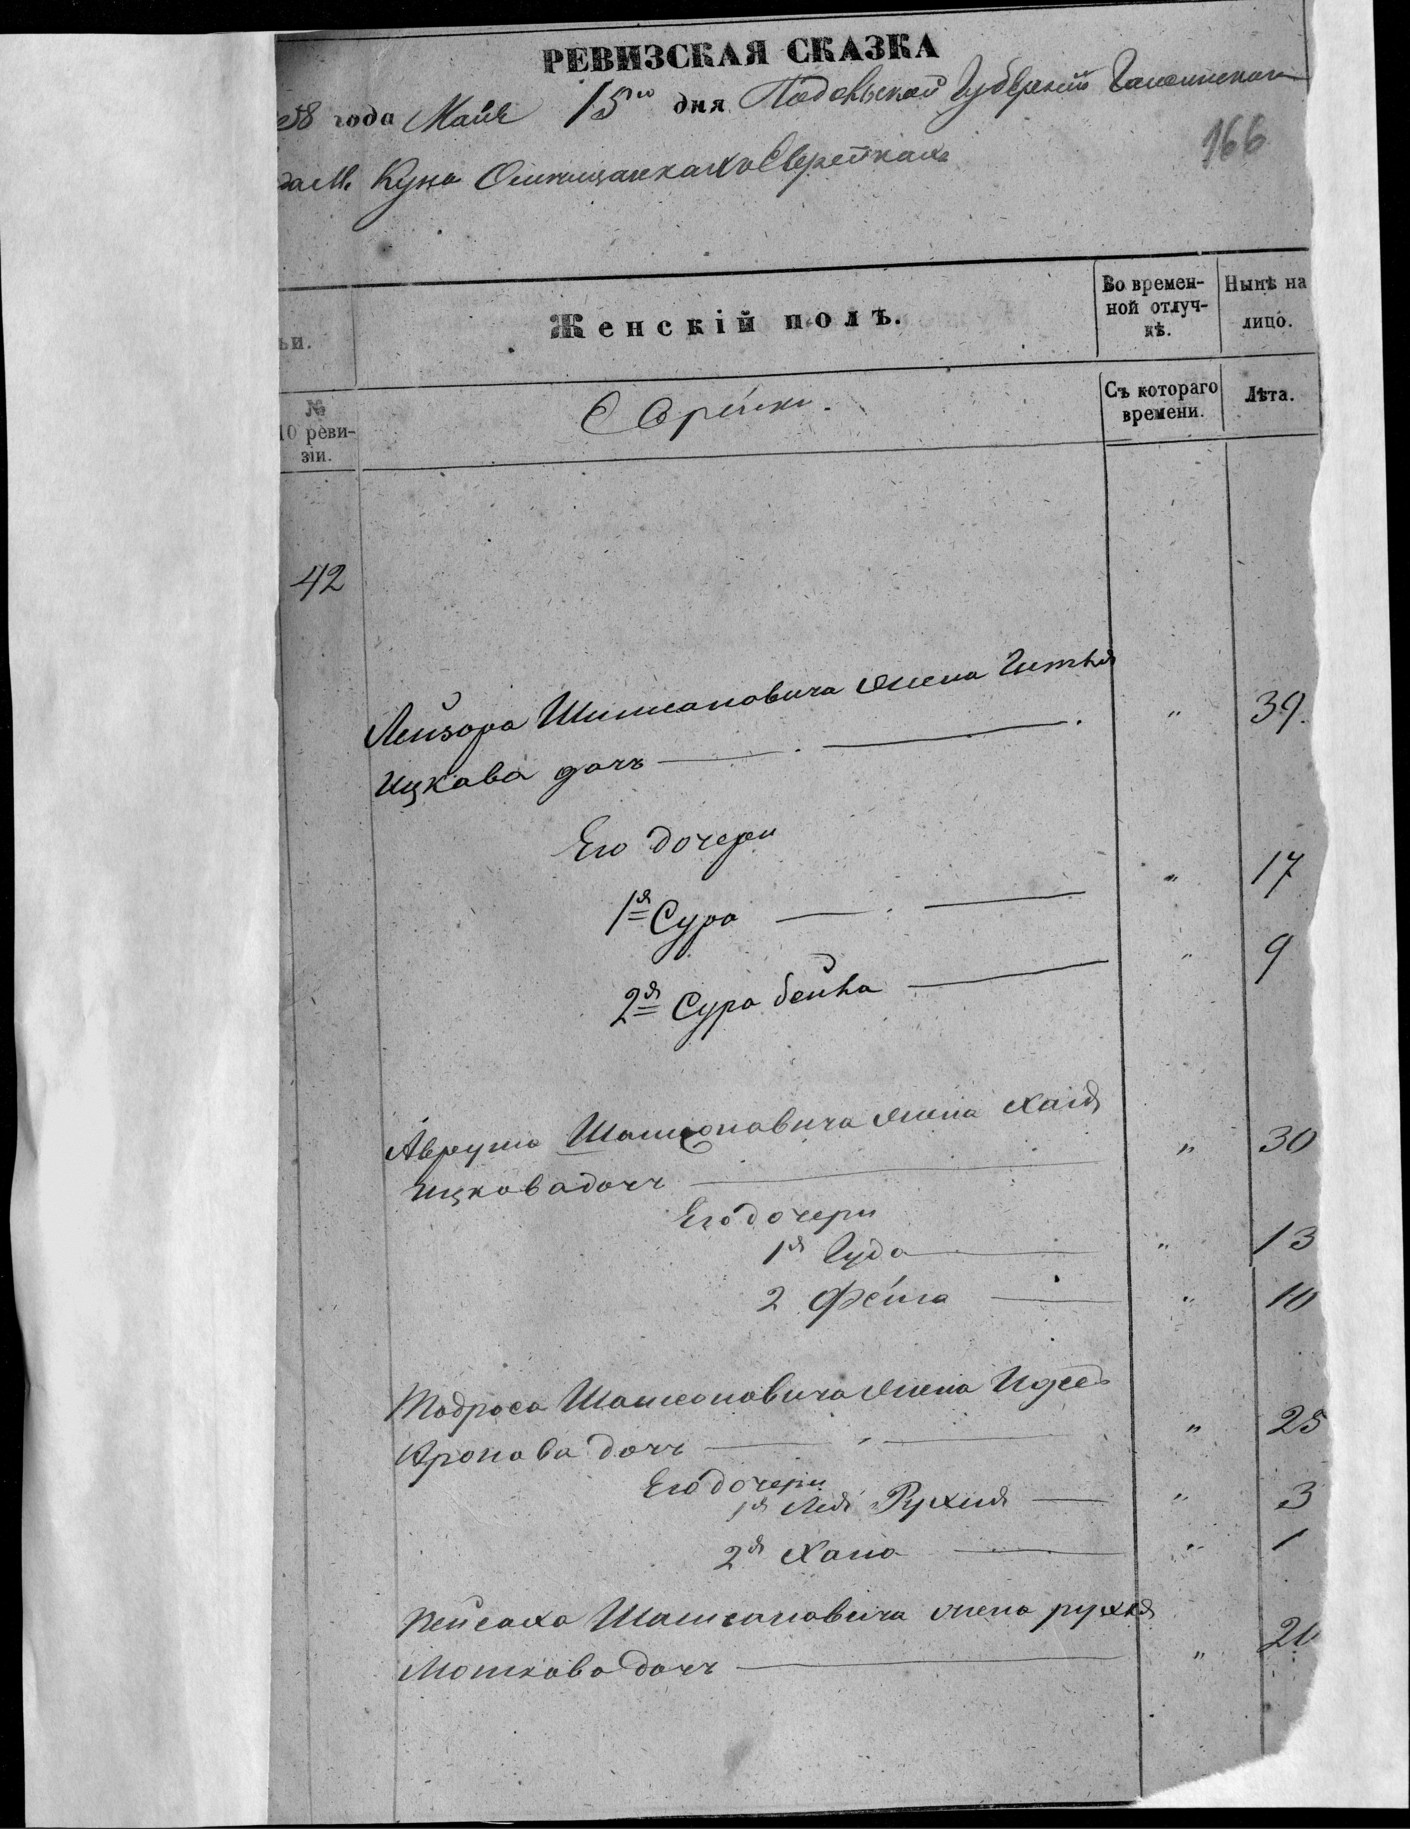 РЕВИЗСКАЯ СКАЗКА
58 года Мая 15го дня Подольской Губернии Гайсинского
да М. Куна О мещанках Еврейках
166
ьи.
Женскій полъ.
Во времен-
ной отлуч-
кѣ.
Нынѣ на
лицо.
№
10 реви-
зіи.
Еврейки.
Съ котораго
времени.
Лѣта.
42
Лейзора Шимсановича жена Гитля
Ицкова дочь — . — . " 39.
Его дочери
1я Сура — . — " 17
2я Сура бейла — " 9
Аврума Шамсоновича жена Хая
Ицкова дочь — " 30
Его дочери
1я Гуда — " 13
2 Фейга — " 10
Тодроса Шамсоновича жена
Аронова дочь — " 25
Его дочери
1я Лея Рухля — " 3
2я Хана — " 1
Пейсаха Шамсановича жена рухля
Мошкова дочь — " 20